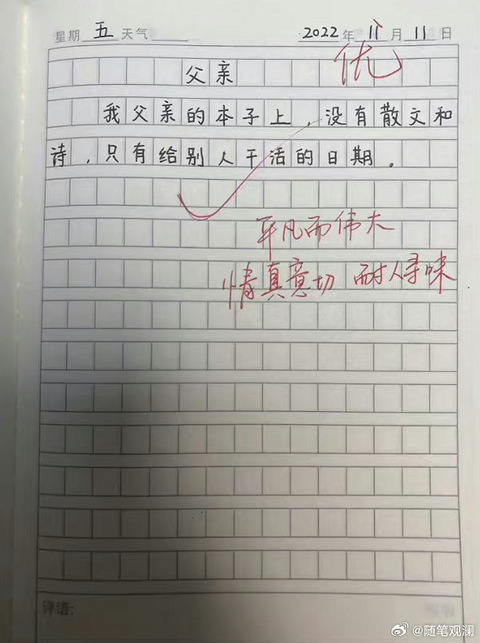 星期 五 天气 2022年 11月 11日
优
父亲
我父亲的本子上，没有散文和
诗，只有给别人干活的日期。
平凡而伟大
情真意切 耐人寻味
评语：
@随笔观澜